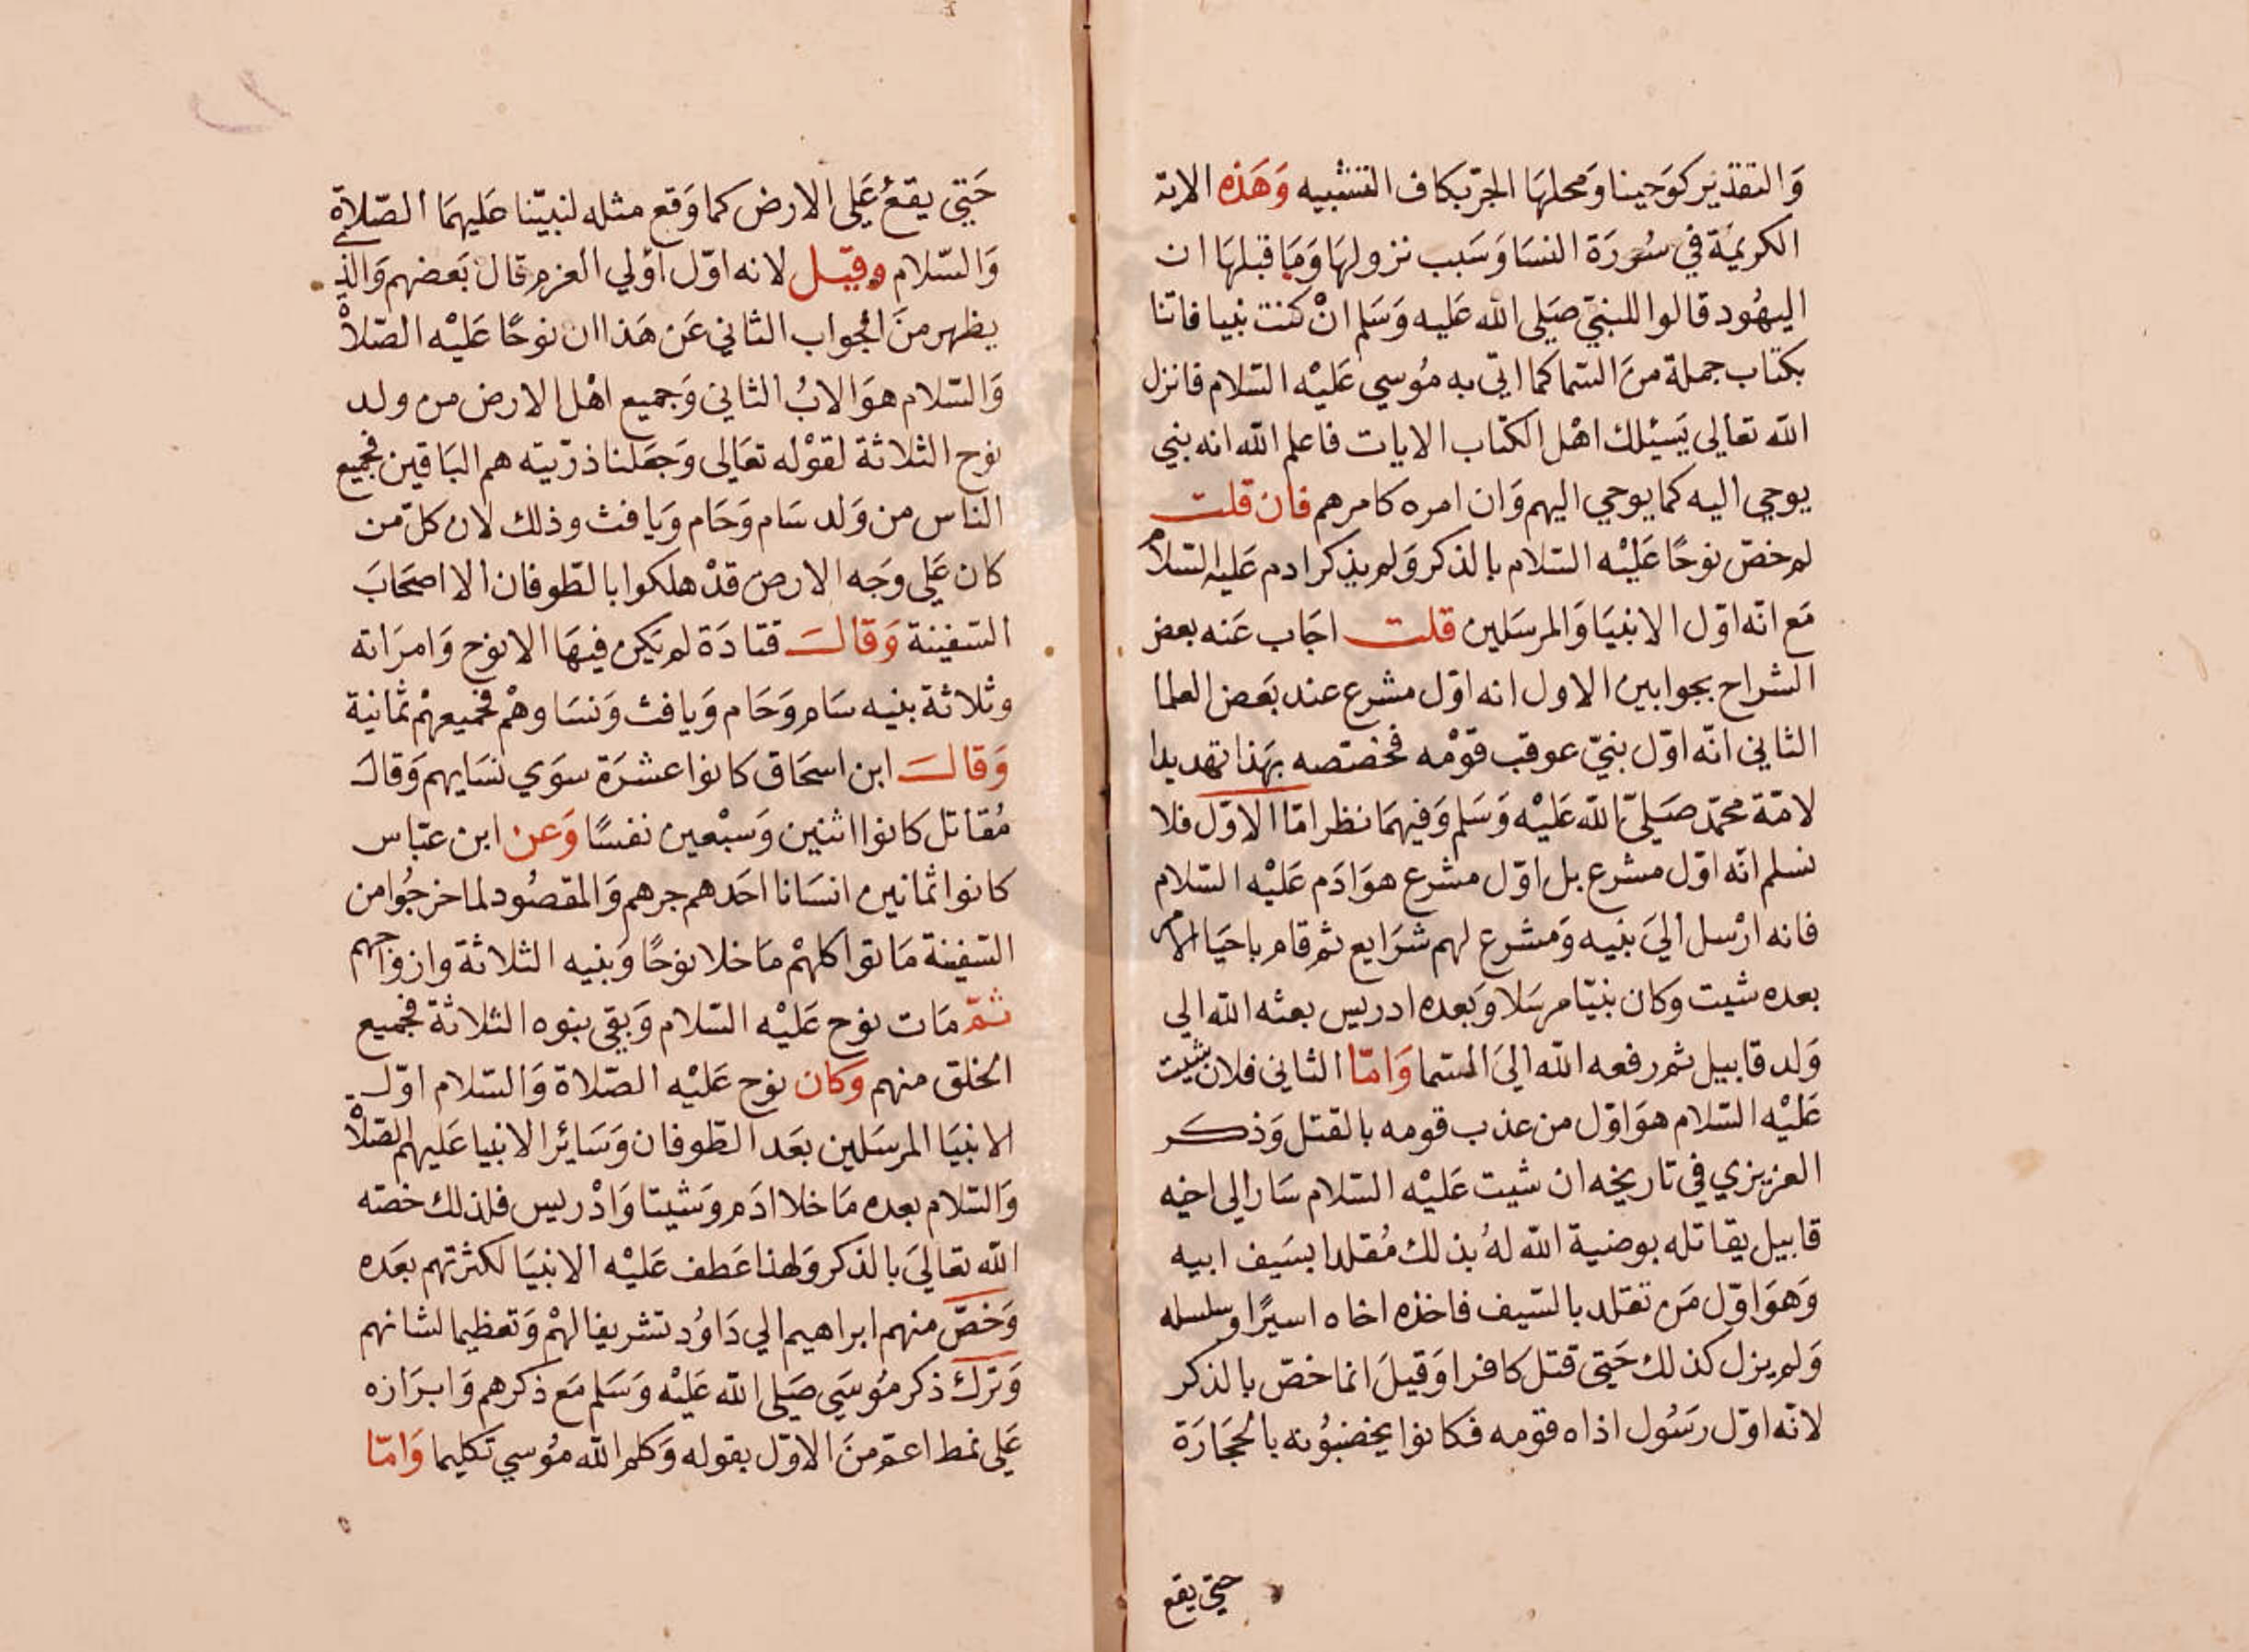 وَالتقدير كوَحينا وَمحلهَا الجرّ بكاف التشبيه وَهَذه الاية
الكريمَة في سُورَة النسَا وَسَبب نزولهَا وَمَا قبلهَا ان
اليهُود قالوا للنبيّ صَلى الله عَليه وَسَلم انْ كنت نبيا فاتنا
بكتاب جملة منَ السّما كما اتي به مُوسي عَليْه السّلام فانزل
الله تعالي يَسئلك اهْل الكتاب الايات فاعلم الله انه نبي
يوحي اليه كما يوحي اليهم وَان امره كامرهم فان قلت
لم خصّ نوحًا عَليْه السّلام بالذكر وَلم يذكر ادم عَليه السّلام
مَع انّه اوّل الانبيَا وَالمرسَلين قلت اجَاب عَنه بعض
الشراح بجوابين الاول انه اوّل مشرع عند بَعض العلما
الثاني انّه اوّل نبيّ عوقب قوْمه فخصّصه بهَذا تهديدا
لامّة محمّد صَلّى الله عَليْه وَسَلم وَفيهمَا نظر امّا الاوّل فلا
نسلم انّه اوّل مشرع بل اوّل مشرع هوَ ادَم عَليْه السّلام
فانه ارْسل اليَ بنيه وَمشرع لهم شرَايع ثم قام باحيَا الامر
بعده شيت وَكان نبيّا مرسَلا وَبَعده ادريس بعثه الله الي
وَلد قابيل ثم رفعه الله اليَ السّما وَامّا الثاني فلان شيت
عَليْه السّلام هوَ اوّل من عذب قومه بالقتل وَذكر
العزيزي في تاريخه ان شيت عَليْه السّلام سَار الي اخيه
قابيل يقاتله بوصية الله لهُ بذلك مُقلدا بسَيف ابيه
وَهوَ اوّل مَن تقلد بالسّيف فاخذه اخاه اسيرًا وسلسله
وَلم يزل كذلك حَتي قتل كافرا وَقيلَ انما خصّ بالذكر
لانّه اوّل رَسُول اذاه قومه فكانوا يخضبُونه بالحجَارَة
حتي يقع
حَتي يقعُ عَلي الارض كما وَقع مثله لنبيّنا عَليهمَا الصّلاة
وَالسّلام وقيل لانه اوّل اوُلي العزم قال بَعضهم وَالذي
يظهر منَ الجواب الثاني عَن هَذا ان نوحًا عَليْه الصّلاة
وَالسّلام هوَ الابُ الثاني وَجميع اهْل الارض من ولد
نوح الثلاثة لقوْله تعَالي وَجَعَلنا ذرّيته هم البَاقين فجميع
الناس من وَلد سَام وَحَام وَيافث وذلك لان كلّ من
كان عَلي وجَه الارض قدْ هلكوا بالطّوفان الا اصحَابَ
السّفينة وَقال قتادَة لم يَكن فيهَا الا نوح وَامرَاته
وثلاثة بنيه سَام وَحَام وَيافث وَنسَاوهمْ فجميعهمْ ثمانية
وَقال ابن اسحَاق كانوا عشرَة سوَي نسَايهم وَقال
مُقاتل كانوا اثنين وَسبْعين نفسًا وَعن ابن عبّاس
كانوا ثمانين انسَانا احَدهم جرهم وَالمقصُود لما خرجُوا من
السّفينة مَاتوا كلهمْ مَا خلا نوحًا وَبنيه الثلاثة وازوَاجهم
ثمّ مَات نوح عَليْه السّلام وَبقي بنوه الثلاثة فجميع
الخلق منهم وَكان نوح عَليْه الصّلاة وَالسّلام اوّل
الانبيَا المرسَلين بعَد الطّوفان وَسَائر الانبيا عَليهم الصّلاة
وَالسّلام بعده مَا خلا ادَم وَشيتا وَادْريس فلذلك خصّه
الله تعَاليَ بالذكر وَلهذا عَطف عَليْه الانبيَا لكثرتهم بعَده
وَخصّ منهم ابراهيم الي دَاوُد تشريفا لهمْ وَتعظيما لشانهم
وَترَك ذكر مُوسَي صَلي الله عَليْه وَسَلم مَع ذكرهم وَابرَازه
عَلي نمط اعمّ منَ الاوّل بقوله وَكلم الله مُوسي تكليما وَامّا